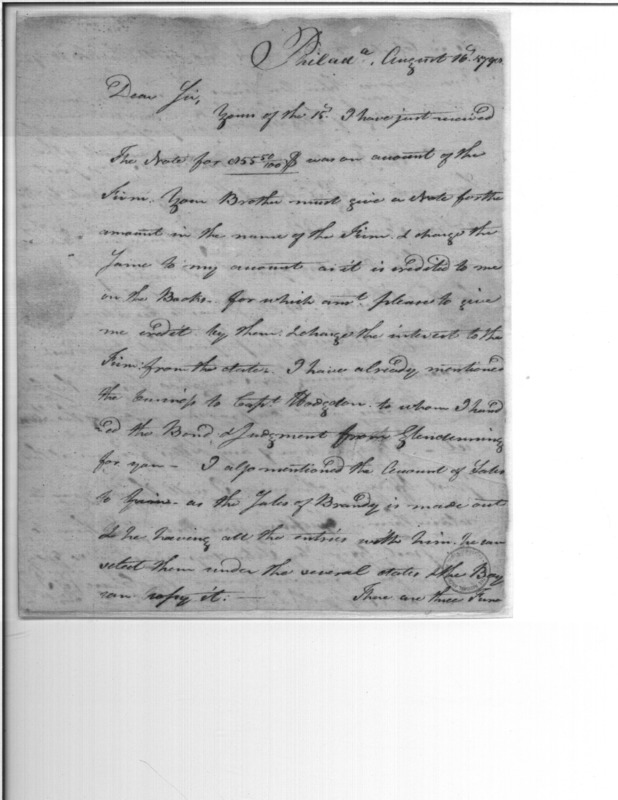 Philad.a, August 16.d 179
Dear Sir,
Yours of the 15.d I have just received
The Note for 855 50/100 $ was on account of the
Firm. Your Brother must give a Note for the
amount in the name of the Firm & charge the
Same to my account as it is credited to me
on the Books. for which amt. please to give
me credit by them & charge the interest to the
Firm from the date. I have already mentioned
the business to Capt. Hodgdon to whom I hand
ed the Bond & Judgment from Glendinning
for you — I also mentioned the Account of Sales
to as the Sales of Brandy is made out
& he having all the entries with him. he can
select them under the several dates & the Boy
can copy it: — There are three